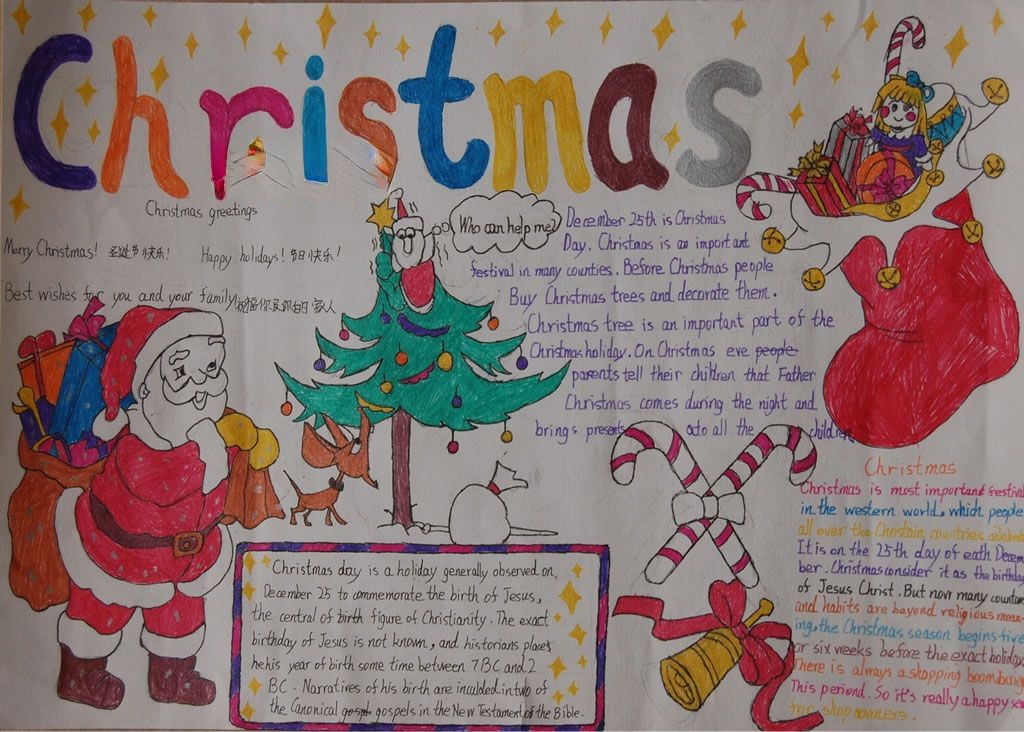 Christmas
Christmas greetings
Merry Christmas! 圣诞节快乐! Happy holidays! 节日快乐!
Best wishes for you and your family 祝福你及你的家人
Who can help me?
December 25th is Christmas
Day. Christmas is an important
festival in many counties. Before Christmas people
Buy Christmas trees and decorate them.
Christmas tree is an important part of the
Christmas holiday. On Christmas eve people
parents tell their children that Father
Christmas comes during the night and
brings presents to all the children
Christmas
Christmas is most important festival
in the western world, which people
all over the Christain countries celebrate
It is on the 25th day of eath Decem
ber. Christmas consider it as the birthday
of Jesus Christ. But now many countries
and habits are beyond religious mean
ing, the Christmas season begins five
or six weeks before the exact holiday
There is always a shopping boom during
This periond. So it's really a happy
for shop owners.
Christmas day is a holiday generally observed on
December 25 to commemorate the birth of Jesus,
the central of birth figure of Christianity. The exact
birthday of Jesus is not known, and historians places
he his year of birth some time between 7 BC and 2
BC. Narratives of his birth are inculded in two of
the Canonical gosp gospels in the New Testament of the Bible.